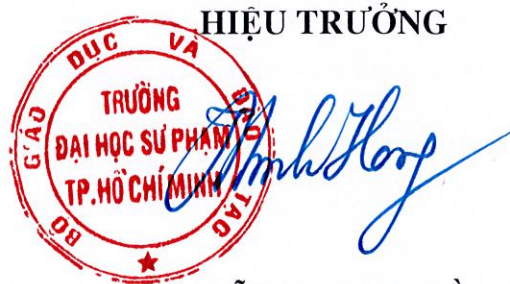 HIỆU TRƯỞNG
BỘ GIÁO DỤC VÀ ĐÀO TẠO
TRƯỜNG
ĐẠI HỌC SƯ PHẠM
TP.HỒ CHÍ MINH